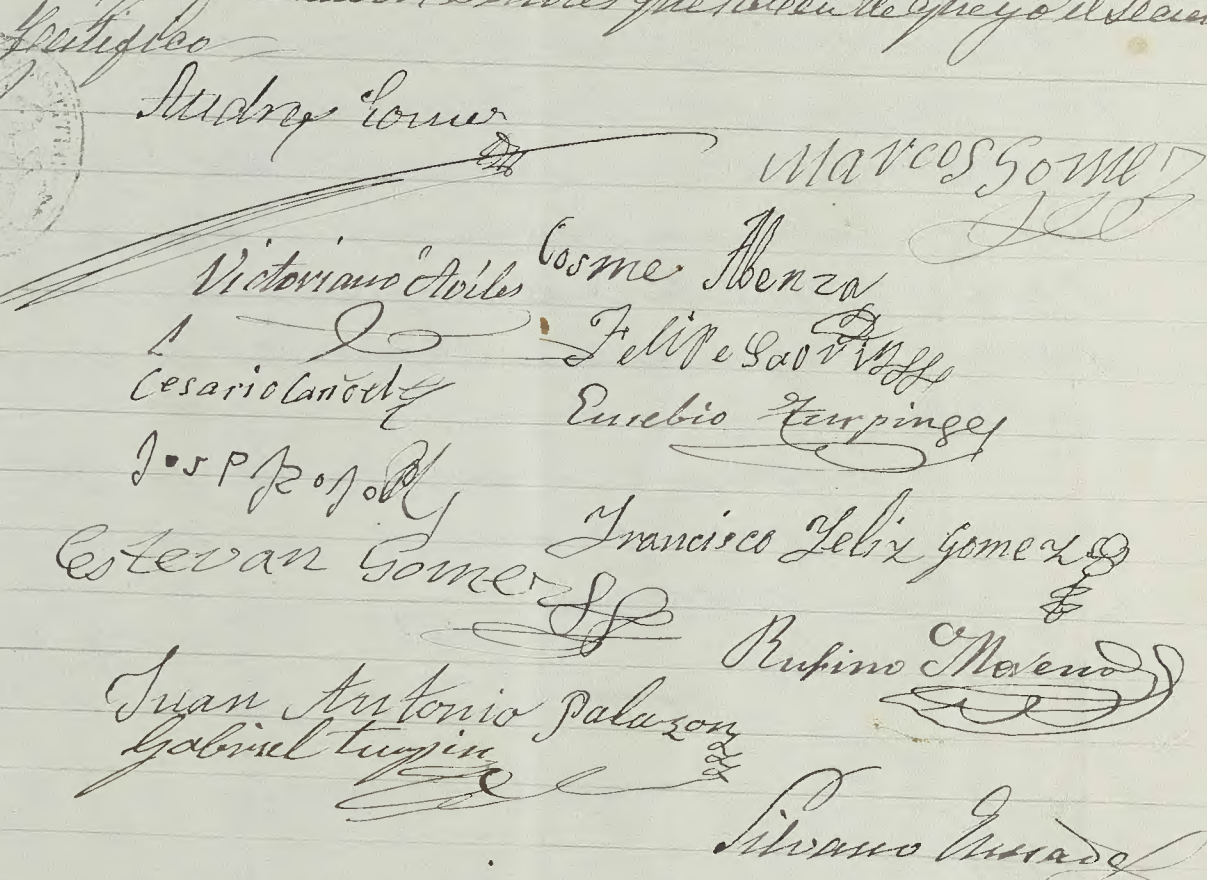 Señores que saben de que yo el Secre
Certifico
Andres Gomez
Marcos Gomez
Victoriano Aviles
Cosme Abenza
Felipe Saorin
Cesario Cañoel
Eusebio Turpin
Jose Rojo
Francisco Feliz Gomez
Estevan Gomez
Rufino Moreno
Juan Antonio Palazon
Gabriel Turpin
Silvano